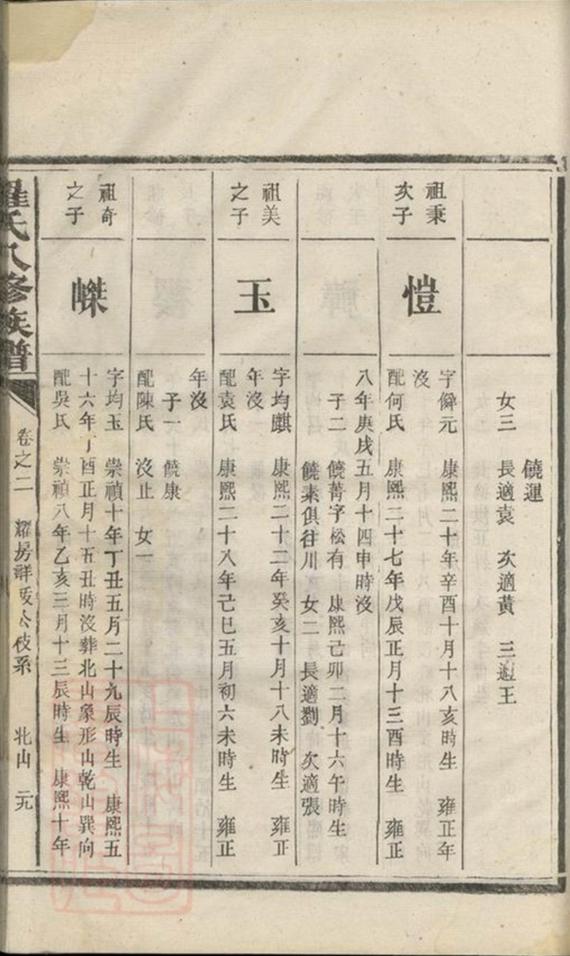 饒運
女三　長適袁　次適黃　三適王
祖秉
次子
愷
字舜元　康熙二十年辛酉十月十八亥時生　雍正年
沒
配何氏　康熙二十七年戊辰正月十三酉時生　雍正
八年庚戌五月十四申時沒
子二　饒菁字松有　康熙己卯二月十六午時生
饒素俱往川　女二　長適劉　次適張
祖美
之子
玉
字均麒　康熙二十二年癸亥十月十八未時生　雍正
年沒
配袁氏　康熙二十八年己巳五月初六未時生　雍正
年沒
子一　饒康
配陳氏　沒止　女一
祖奇
之子
嶙
字均玉　崇禎十年丁丑五月二十九辰時生　康熙五
十六年丁酉正月十五丑時沒葬北山象形山乾山巽向
配吳氏　崇禎八年乙亥三月十三辰時生　康熙十年
羅氏八修族譜
卷之二　耀房詳公枝系　北山　元